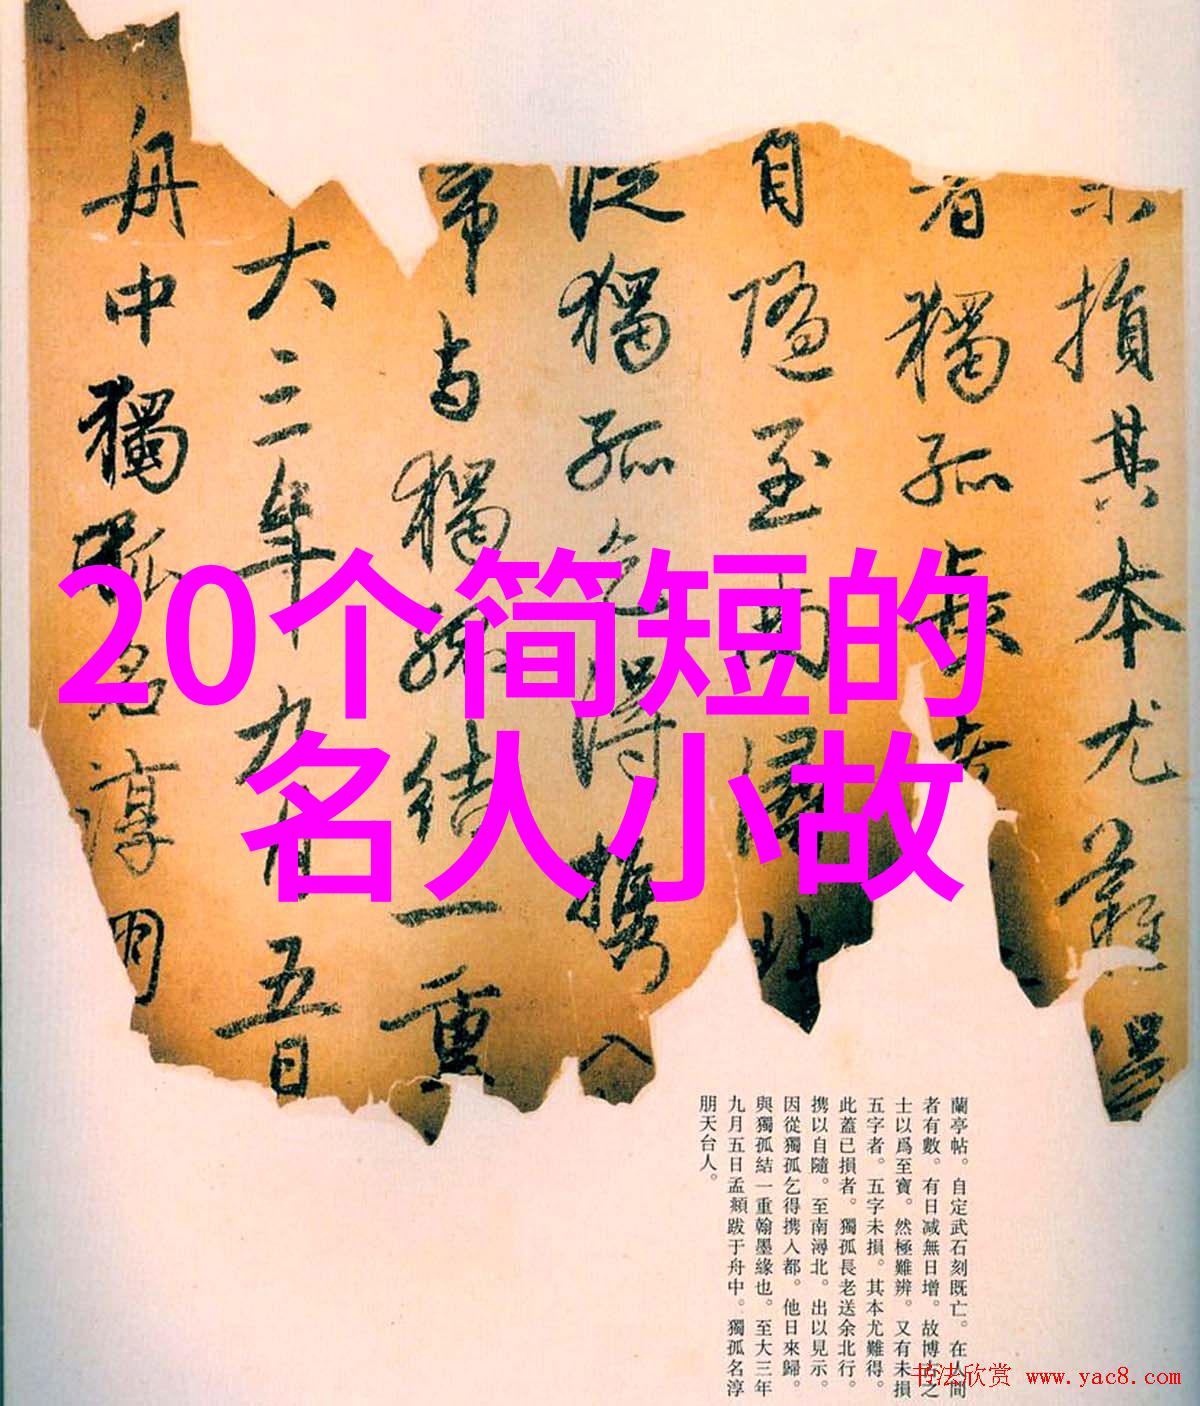 20个简短的
名人小故
未損其本尤難得
者獨孤無恙
自隨至南潯北
從獨孤乞得携入
帝与獨孤結一重
大三年九月五日
舟中獨孤名淳朋
蘭亭帖。自定武石刻既亡。在人間
者有數。有日減無日增。故博古之
士以爲至寶。然極難辨。又有未損
五字者。五字未損。其本尤難得。
此蓋已損者。獨孤長老送余北行。
携以自隨。至南潯北。出以見示。
因從獨孤乞得携入都。他日來歸。
與獨孤結一重翰墨緣也。至大三年
九月五日孟頫跋于舟中。獨孤名淳
朋天台人。
书法欣赏 www.yac8.com